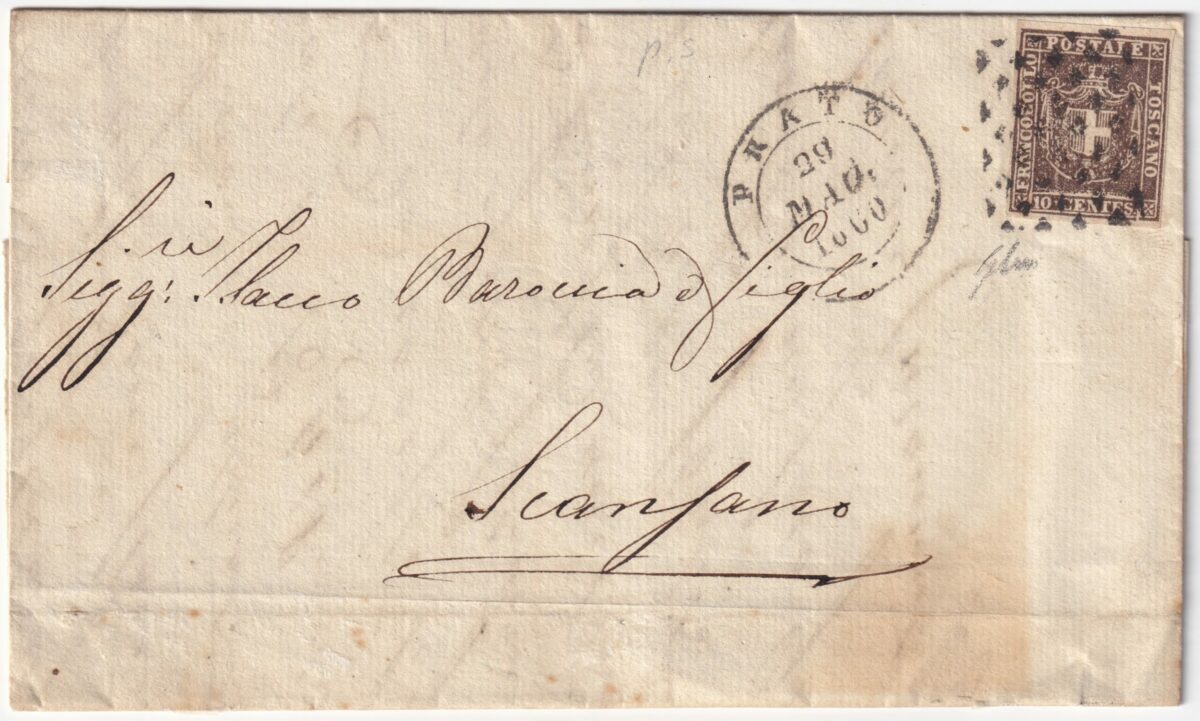 p.s
FRANCOBOLLO POSTALE TOSCANO
10 CENTES.
PRATO
29
MAG.
1860
Sigg.ri Isacco Baroccia e Figlio
Scansano